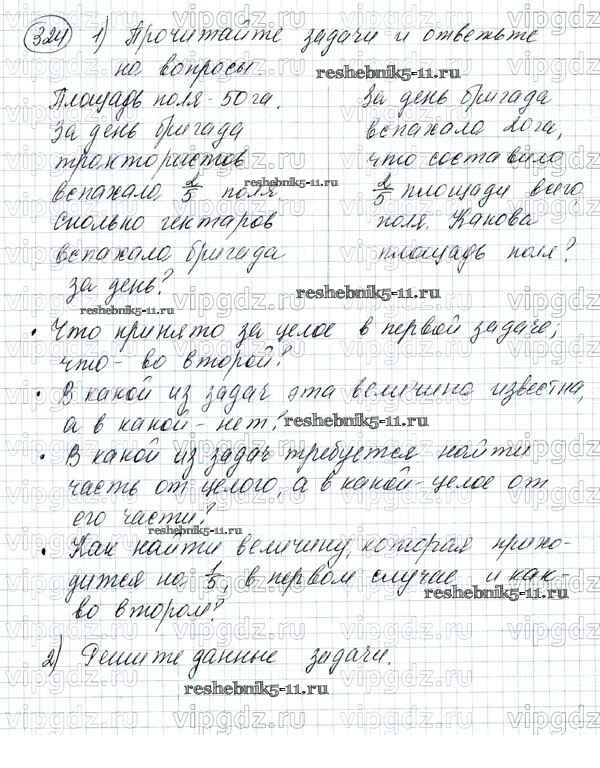 324 1) Прочитайте задачи и ответьте
на вопросы.
reshebnik5-11.ru
Площадь поля - 50 га.
За день бригада
трактористов
вспахала 2/5 поля
reshebnik5-11.ru
Сколько гектаров
вспахала бригада
за день?
За день бригада
вспахала 20га,
что составило
2/5 площади всего
поля. Какова
площадь поля?
reshebnik5-11.ru
reshebnik5-11.ru
• Что принято за целое в первой задаче,
что - во второй?
• В какой из задач эта величина известна,
а в какой - нет?
reshebnik5-11.ru
• В какой из задач требуется найти
часть от целого, а в какой - целое от
его части?
reshebnik5-11.ru
• Как найти величину, которая прихо-
дится на 1/5, в первом случае и как -
во втором?
reshebnik5-11.ru
2) Решите данные задачи.
reshebnik5-11.ru
vipgdz.ru